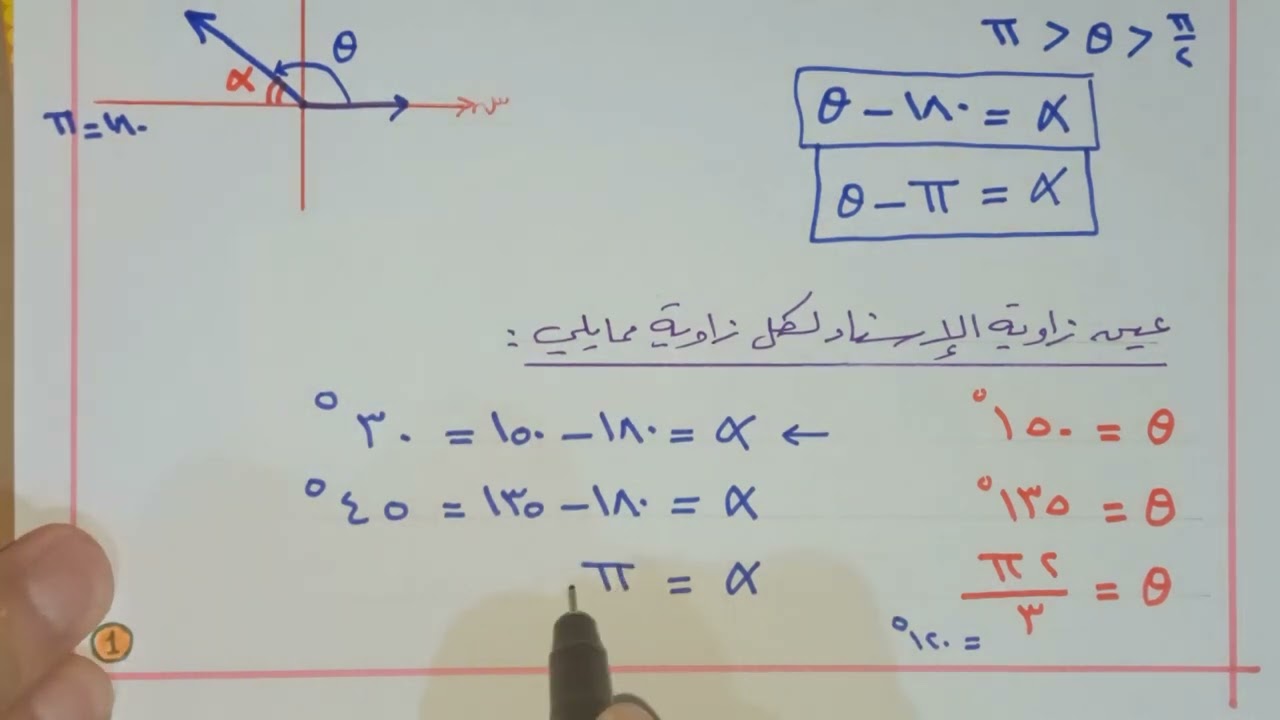 π > θ > π/٢
θ
α
س
π = ١٨٠
θ − ١٨٠ = α
θ − π = α
عين زاوية الإسناد لكل زاوية مما يلي :
θ = ١٥٠° ← α = ١٨٠ − ١٥٠ = ٣٠°
θ = ١٣٥° α = ١٨٠ − ١٣٥ = ٤٥°
θ = ٢π/٣ α = π
= ١٢٠°
1